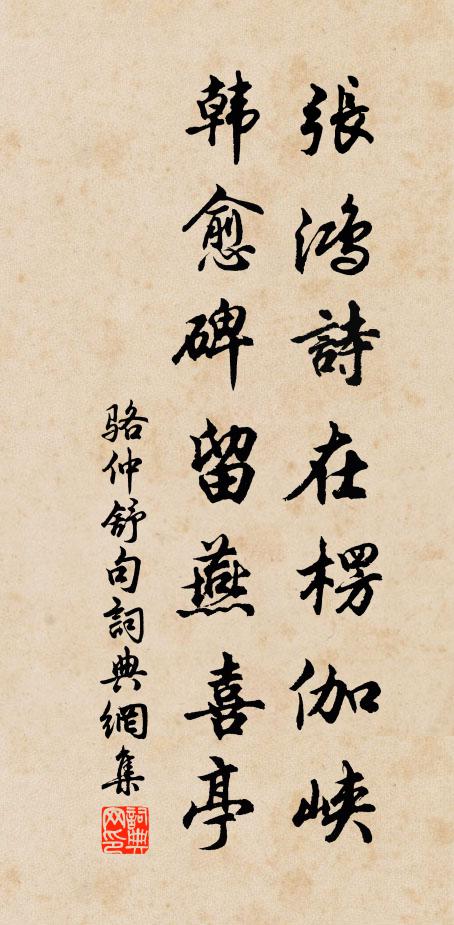 張鴻詩在楞伽峽
韓愈碑留燕喜亭
骆仲舒句詞典網集
詞典网印